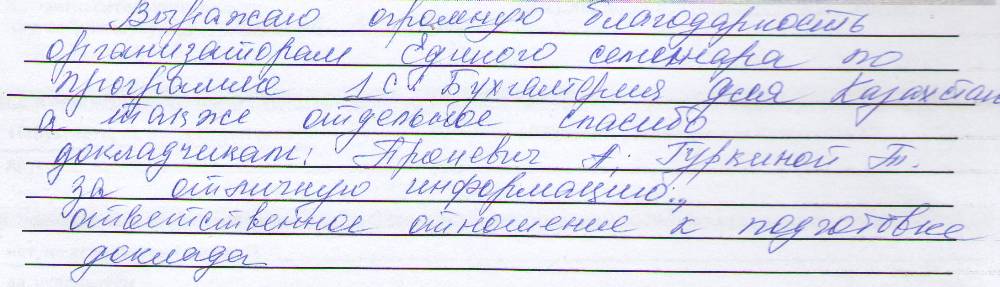 Выражаю огромную благодарность
организаторам Единого семинара по
программе 1С: Бухгалтерия для Казахстан
а также отдельное спасибо
докладчикам: Проневич А, Гуркиной Т.
за отличную информацию,
ответственное отношение к подготовке
доклада